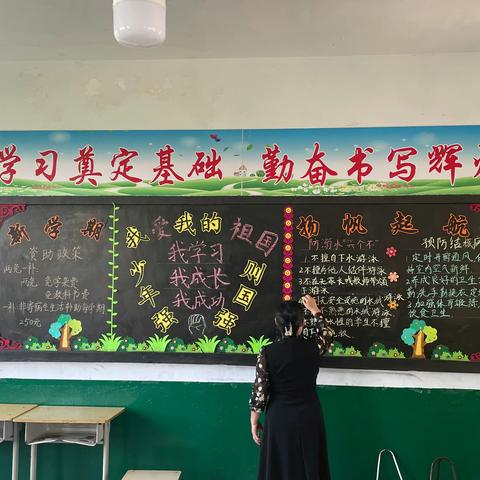 学习奠定基础 勤奋书写辉
新学期
资助政策
两免一补
两免: 免学杂费
免教科书费
一补: 非寄宿生活补助每学期
250元
我爱我的祖国
我学习
我成长
我成功
少年强则国强
扬帆起航
防溺水"六个不"
1.不擅自下水游泳
2.不擅自与他人结伴游泳
3.不在无家长或教师带领
下游泳
不熟悉的水域游泳
水性的学生不擅
预防结核病
1.定时开窗通风,保
持室内空气新鲜
2.养成良好的卫生
3.加强体育锻炼
饮食卫生